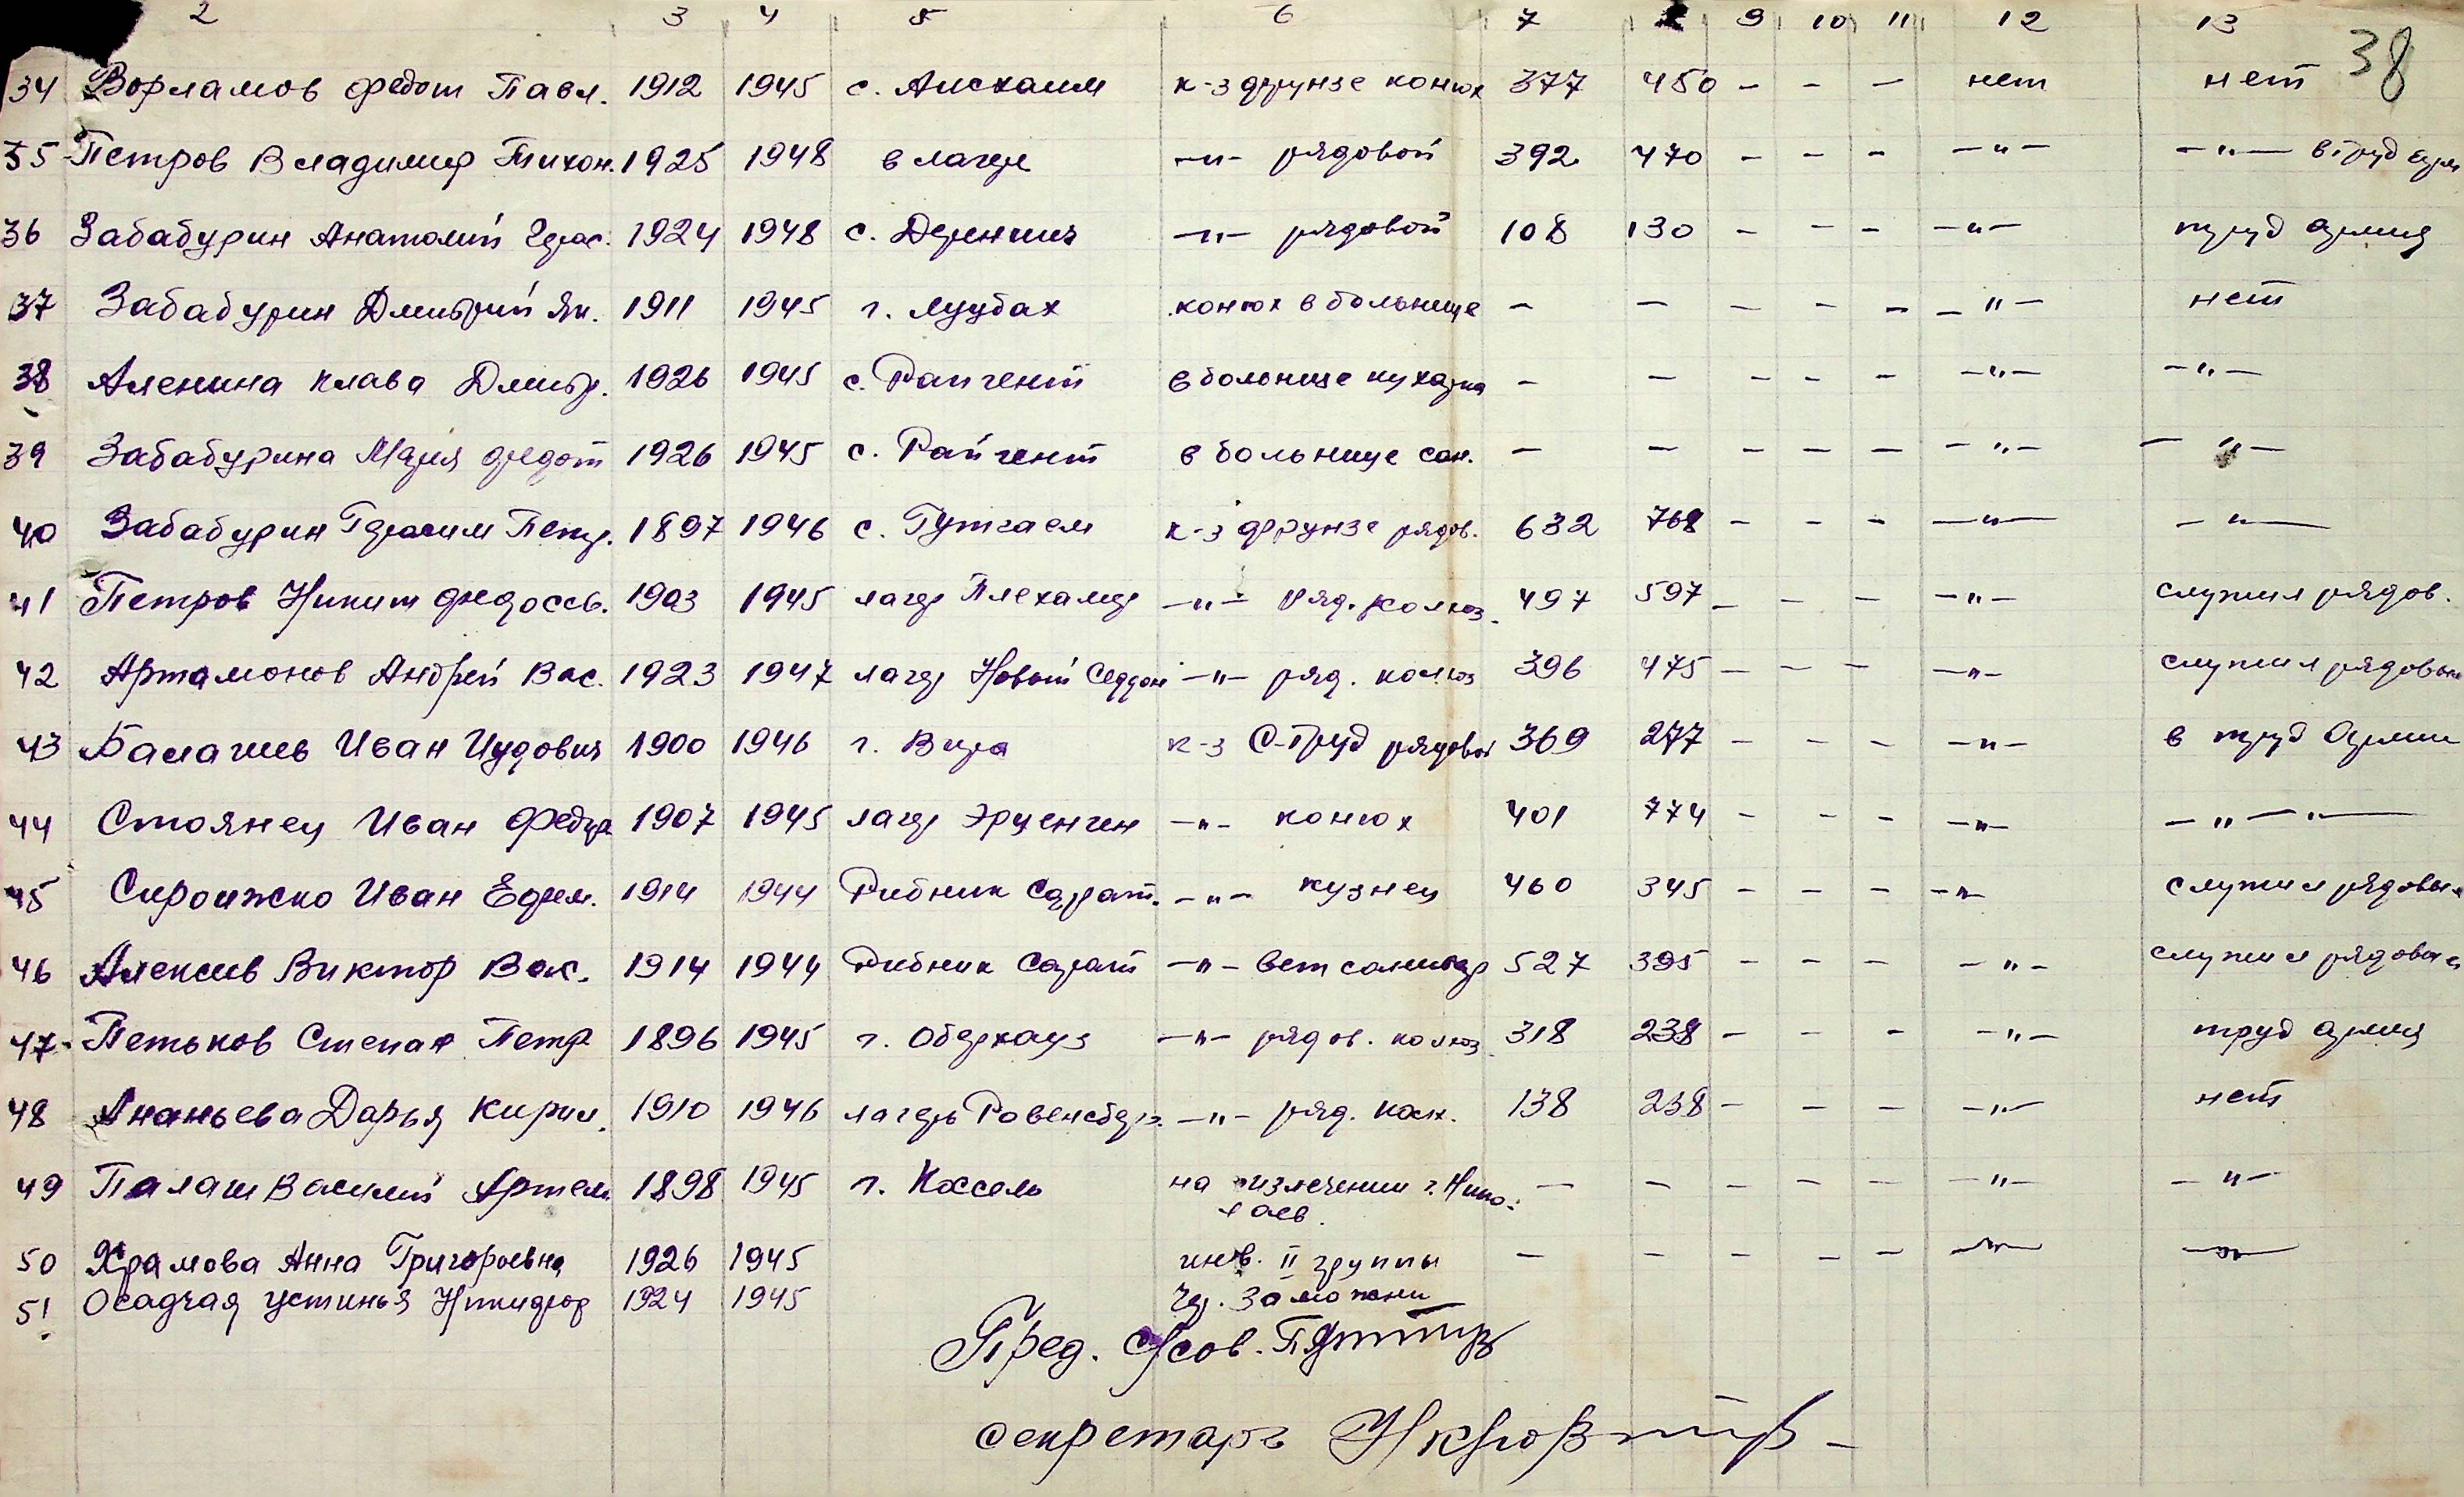 2 3 4 5 6 7 9 10 11 12 13
38
34 Ворламов Федот Павл. 1912 1945 с. Аисхаим к-з Фрунзе конюх 377 450 - - - нет нет
35 Петров Владимир Тихон. 1925 1948 в лагере -"- рядовой 392 470 - - - -"- -"- в труд
36 Забабурин Анатолий Герас. 1924 1948 с. -"- рядовой 108 130 - - - -"- труд армия
37 Забабурин Дмитрий Як. 1911 1945 г. конюх в больнице - - - - - -"- нет
38 Аленина Клава Дмитр. 1926 1945 с. Райгент в больнице кухарка - - - - - -"- -"-
39 Забабурина Мария Федот 1926 1945 с. Райгент в больнице сан. - - - - - -"- -"-
40 Забабурин Герасим Петр. 1897 1946 с. Гутгаем к-з Фрунзе рядов. 632 768 - - - -"- -"-
41 Петров Никит Федоссв. 1903 1945 лагер -"- ряд. колхоз. 497 597 - - - -"- служил рядов.
42 Артамонов Андрей Вас. 1923 1947 лагер Новый Седдон -"- ряд. колхоз 396 475 - - - -"- служил рядовым
43 Балашев Иван Иудович 1900 1946 г. Вира к-з С-Труд рядовой 369 277 - - - -"- в труд Армии
44 Стоянец Иван Федор 1907 1945 лагер Эрценген -"- конюх 401 774 - - - -"- -"-
45 Сироижко Иван Ефим. 1914 1944 Рибник Сарат. -"- кузнец 460 345 - - - -"- служил рядовым
46 Алексив Виктор Вас. 1914 1944 Рибник Сарат -"- ветсанитар 527 395 - - - -"- служил рядовым
47 Петьков Степан Петр 1896 1945 г. Оберхауз -"- рядов. колхоз. 318 238 - - - -"- труд армия
48 Ананьева Дарья Кирил. 1910 1946 лагерь Равенсбрг. -"- ряд. колх. 138 238 - - - -"- нет
49 Палаш Василий Артем. 1898 1945 г. Кассель на излечении г. Нико- - - - - - -"- -"-
лаев.
50 Храмова Анна Григорьевна 1926 1945 инв. II группы - - - - - -"- -"-
51 Осадчая Устинья Никифор 1924 1945
Пред. с/сов.
секретарь